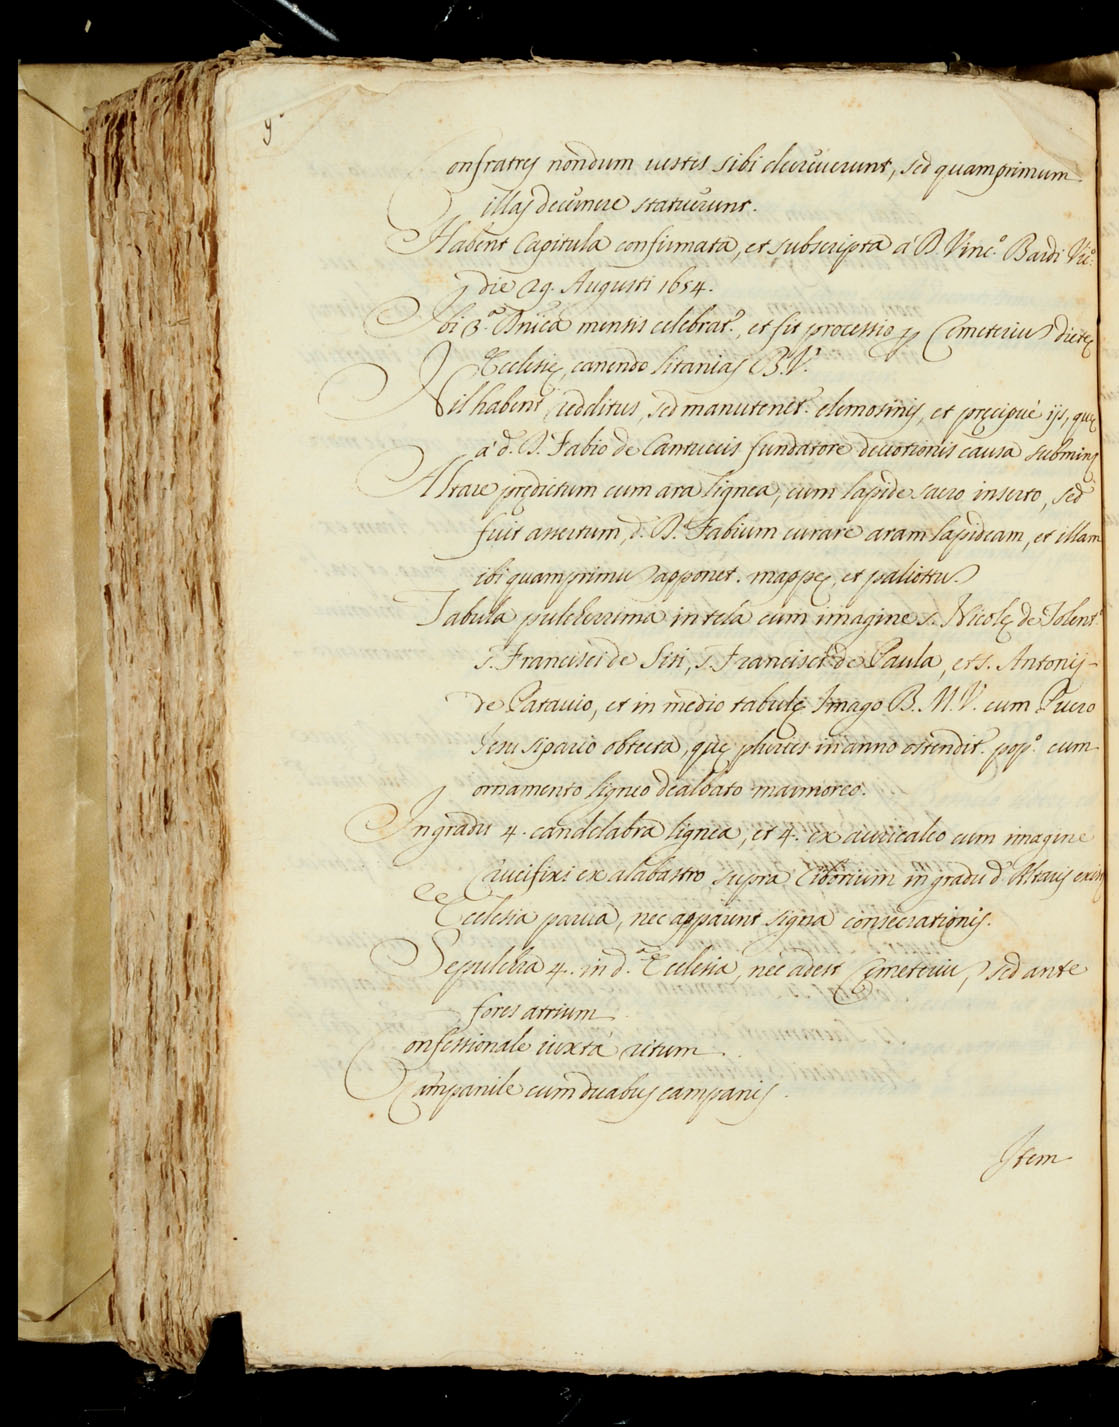 9.
Confratres nondum vestes sibi decreverunt, sed quamprimum
illas decernere statuerunt.
Habent Capitula confirmata, et subscripta à D. Vinc.º Bardi Vic.º
die 29. Augusti 1654.
Ibi 3.ª Dñica mensis celebrat.r, et fit processio p Cemeteriu dictę
Ecclesię, canendo litanias B. V.
Nil habent redditus, sed manutenet.r elemosinis, et pręcipuè ijs, quę
à d. D. Fabio de Cantuccis fundatore devotionis causa
Altare prędictum cum ara lignea, cum lapide sacro inserto, sed
fuit assertum, d. D. Fabium curare aram lapideam, et illam
ibi quamprimu apponet. mappę, et paliottu.
Tabula pulcherrima in tela cum imagine s. Nicolę de Tolent.º
s. Francisci de Sisi, s. Francisci de Paula, et s. Antonij
de Patavio, et in medio tabulę Imago B. M. V. cum Puero
Iesu sipario obtecta, quę pluries in anno ostendit.r pop.º cum
ornamento ligneo dealbato marmoreo.
In gradu 4. candelabra lignea, et 4. ex auricalco cum imagine
Crucifixi ex alabastro supra Ciborium in gradu d. Altaris
Ecclesia parva, nec apparent signa consecrationis.
Sepulchra 4. in d.ª Ecclesia, nec adest Cemeteriu, sed ante
fores atrium
Confessionale iuxta ritum.
Campanile cum duabus campanis.
Item